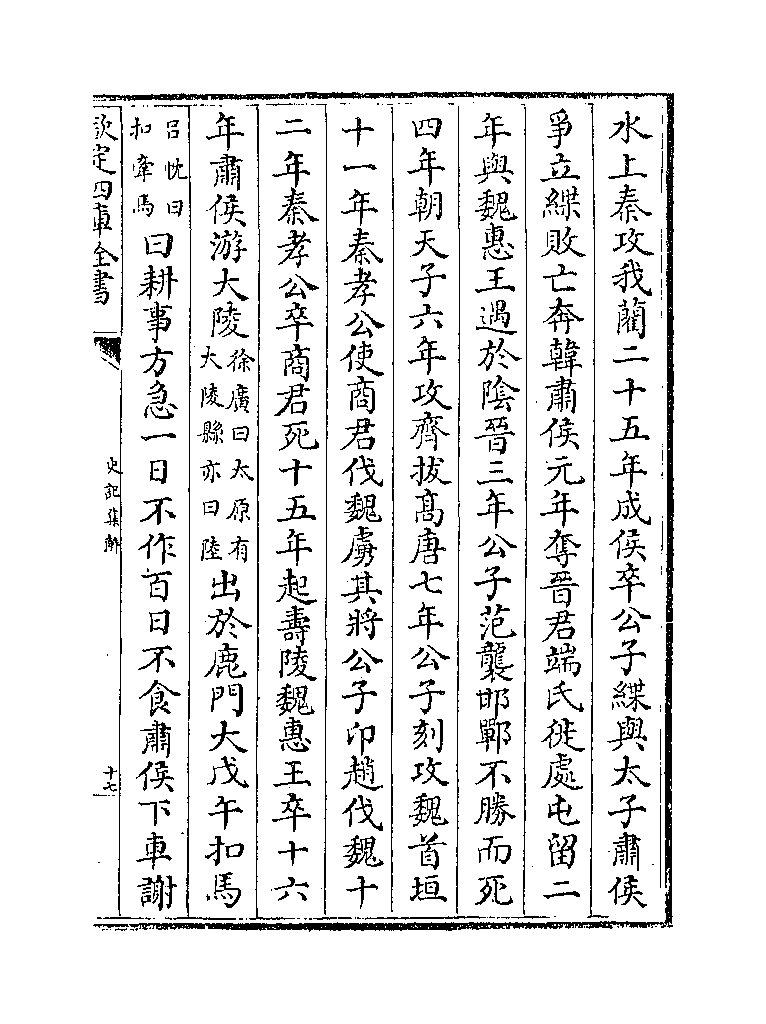 水上秦攻我藺二十五年成侯卒公子緤與太子肅侯
爭立緤敗亡奔韓肅侯元年奪晉君端氏徙處屯留二
年與魏惠王遇於陰晉三年公子范襲邯鄲不勝而死
四年朝天子六年攻齊拔髙唐七年公子刻攻魏首垣
十一年秦孝公使商君伐魏虜其將公子卬趙伐魏十
二年秦孝公卒商君死十五年起壽陵魏惠王卒十六
年肅侯游大陵徐廣曰太原有大陵縣亦曰陸出於鹿門大戊午扣馬
呂忱曰扣牽馬曰耕事方急一日不作百日不食肅侯下車謝
欽定四庫全書
史記集解
十七